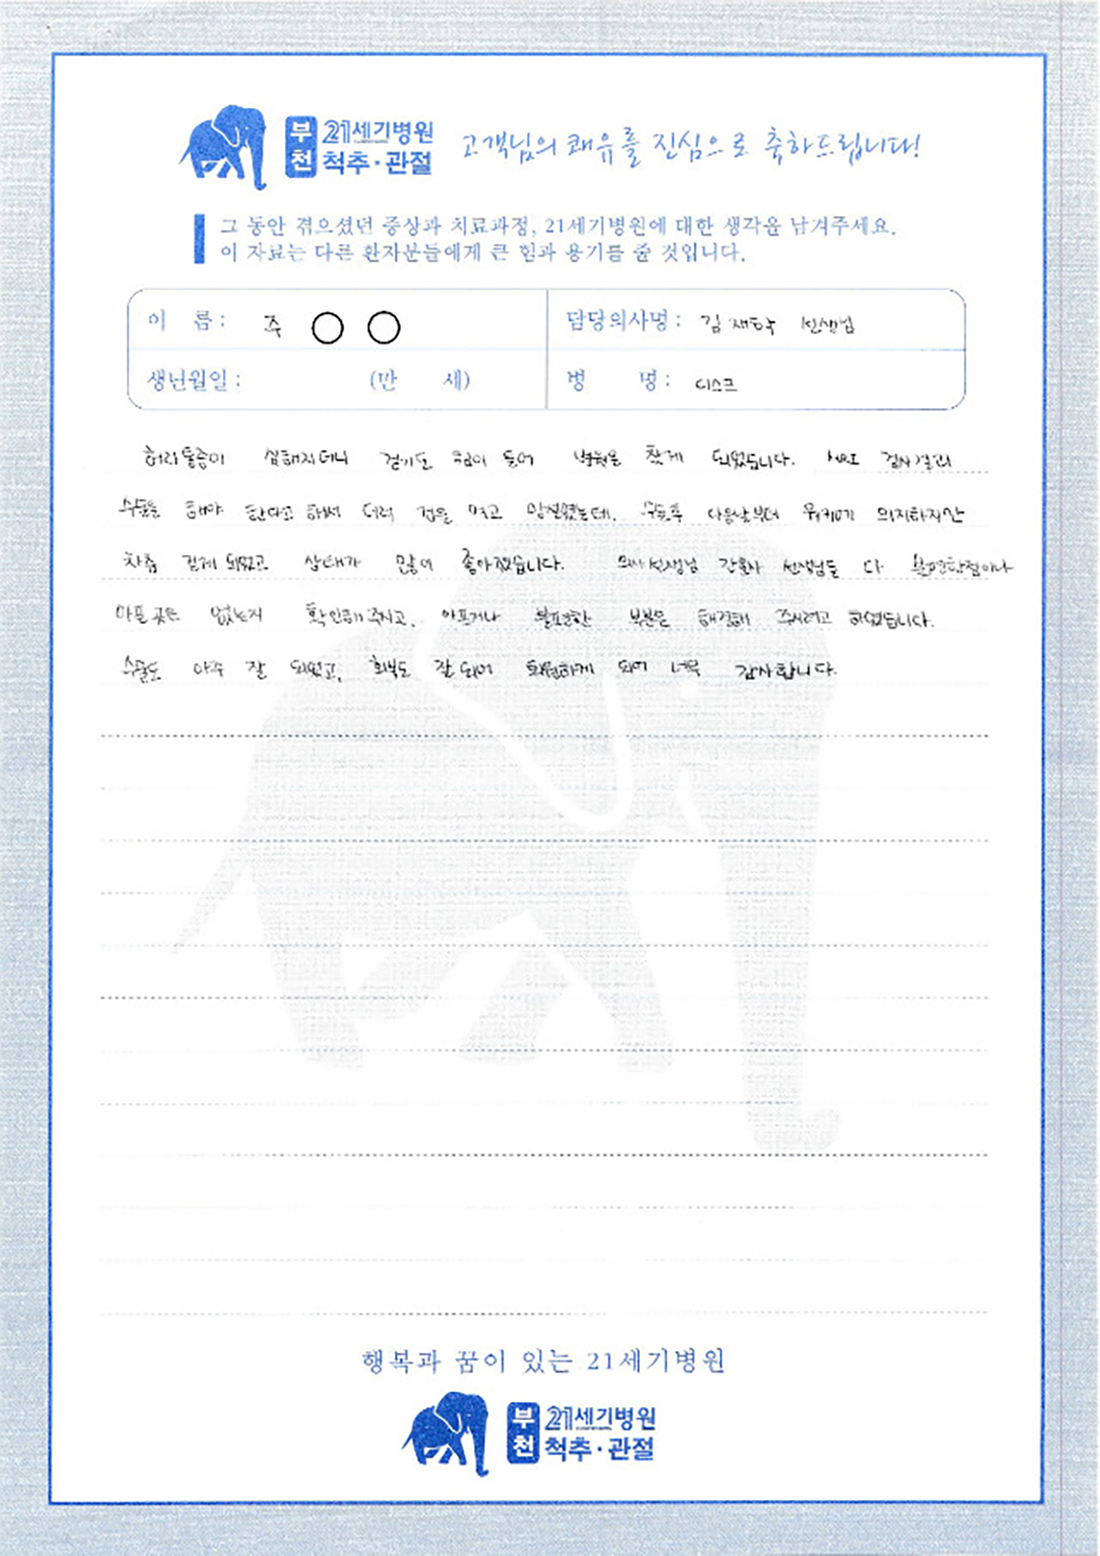 부천 21세기병원 척추·관절 고객님의 쾌유를 진심으로 축하드립니다!
그 동안 겪으셨던 증상과 치료과정, 21세기병원에 대한 생각을 남겨주세요.
이 자료는 다른 환자분들에게 큰 힘과 용기를 줄 것입니다.
이 름 : 주 ○ ○ 담당의사명 : 김재탁 선생님
생년월일 : (만 세) 병 명 : 디스크
허리통증이 심해지더니 걷기도 힘이 들어 병원을 찾게 되었습니다. MRI 검사결과
수술을 해야 한다고 해서 더럭 겁을 먹고 망설였는데, 수술후 다음날부터 워커에 의지하지만
차츰 걷게 되었고 상태가 많이 좋아졌습니다. 의사선생님 간호사 선생님들 다 불편한점이나
아픈 곳은 없는지 확인해주시고, 아프거나 불편한 부분은 해결해 주시려고 하셨습니다.
수술도 아주 잘 되었고, 회복도 잘되어 퇴원하게 되어 너무 감사합니다.
행복과 꿈이 있는 21세기병원
부천 21세기병원 척추·관절